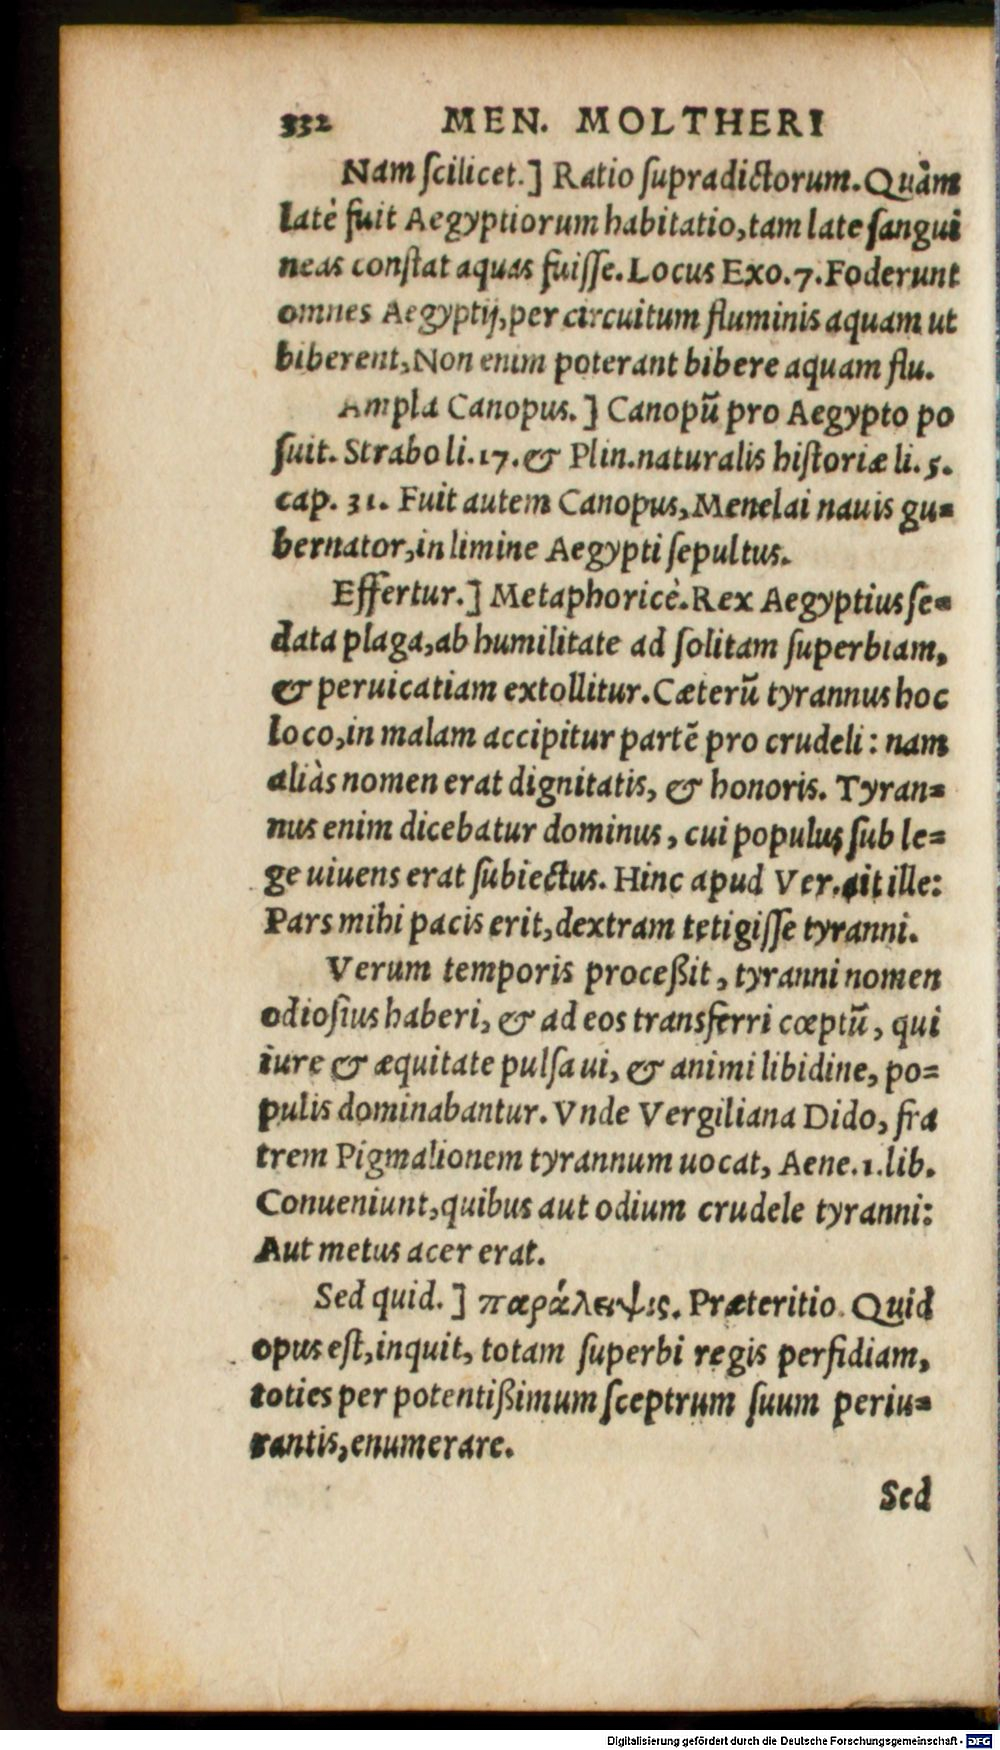 332 MEN. MOLTHERI
Nam ſcilicet.] Ratio ſupradictorum. Quàm
latè fuit Aegyptiorum habitatio, tam late ſangui
neas conſtat aquas fuiſſe. Locus Exo. 7. Foderunt
omnes Aegyptij, per circuitum fluminis aquam ut
biberent, Non enim poterant bibere aquam flu.
Ampla Canopus.] Canopū pro Aegypto po
ſuit. Strabo li. 17. & Plin. naturalis hiſtoriæ li. 5.
cap. 31. Fuit autem Canopus, Menelai nauis gu=
bernator, in limine Aegypti ſepultus.
Effertur.] Metaphoricè. Rex Aegyptius ſe=
data plaga, ab humilitate ad ſolitam ſuperbiam,
& peruicatiam extollitur. Cæterū tyrannus hoc
loco, in malam accipitur partē pro crudeli: nam
aliàs nomen erat dignitatis, & honoris. Tyran=
nus enim dicebatur dominus, cui populus ſub le=
ge uiuens erat ſubiectus. Hinc apud Ver. ait ille:
Pars mihi pacis erit, dextram tetigiſſe tyranni.
Verum temporis proceßit, tyranni nomen
odioſius haberi, & ad eos transferri cœptū, qui
iure & æquitate pulſa ui, & animi libidine, po=
pulis dominabantur. Vnde Vergiliana Dido, fra
trem Pigmalionem tyrannum uocat, Aene. 1. lib.
Conueniunt, quibus aut odium crudele tyranni:
Aut metus acer erat.
Sed quid.] παράλειψις. Præteritio. Quid
opus eſt, inquit, totam ſuperbi regis perfidiam,
toties per potentißimum ſceptrum ſuum periu=
rantis, enumerare.
Sed
Digitalisierung gefördert durch die Deutsche Forschungsgemeinschaft - DFG